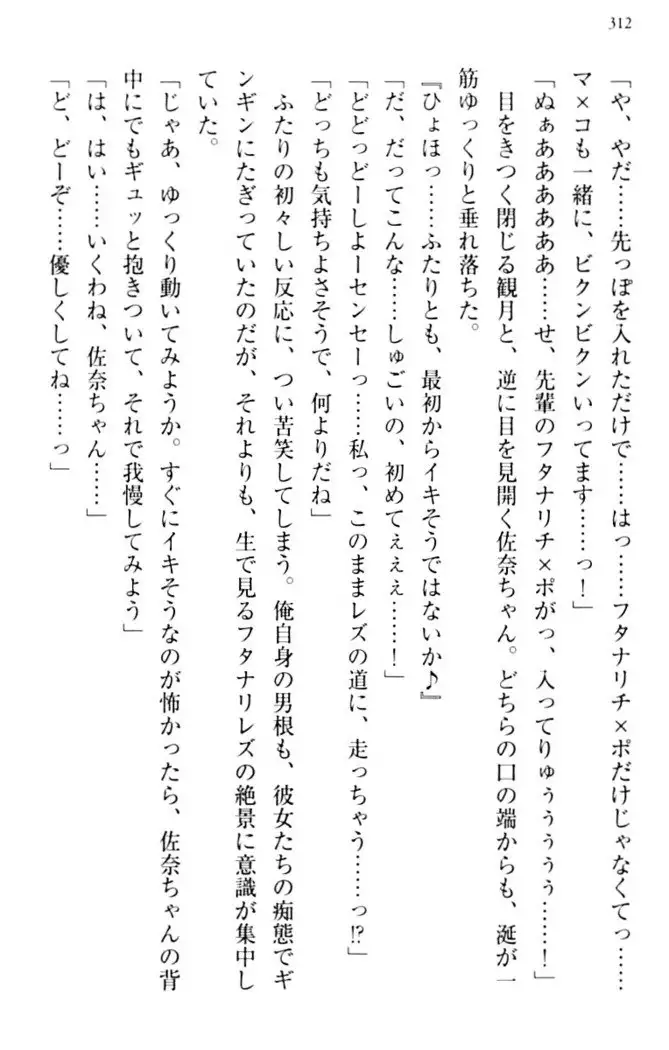 312
「や、やだ……先っぽを入れただけで……はっ……フタナリチ×ポだけじゃなくてっ……
マ×コも一緒に、ビクンビクンいってます……っ！」
「ぬぁああああああ……せ、先輩のフタナリチ×ポがっ、入ってりゅぅぅぅぅぅ……！」
目をきつく閉じる観月と、逆に目を見開く佐奈ちゃん。どちらの口の端からも、涎が一
筋ゆっくりと垂れ落ちた。
『ひょほっ……ふたりとも、最初からイキそうではないか♪』
「だ、だってこんな……しゅごいの、初めてぇぇぇ……！」
「どどっどーしよーセンセーっ……私っ、このままレズの道に、走っちゃう……っ⁉」
「どっちも気持ちよさそうで、何よりだね」
ふたりの初々しい反応に、つい苦笑してしまう。俺自身の男根も、彼女たちの痴態でギ
ンギンにたぎっていたのだが、それよりも、生で見るフタナリレズの絶景に意識が集中し
ていた。
「じゃあ、ゆっくり動いてみようか。すぐにイキそうなのが怖かったら、佐奈ちゃんの背
中にでもギュッと抱きついて、それで我慢してみよう」
「は、はい……いくわね、佐奈ちゃん……」
「ど、どーぞ……優しくしてね……っ」